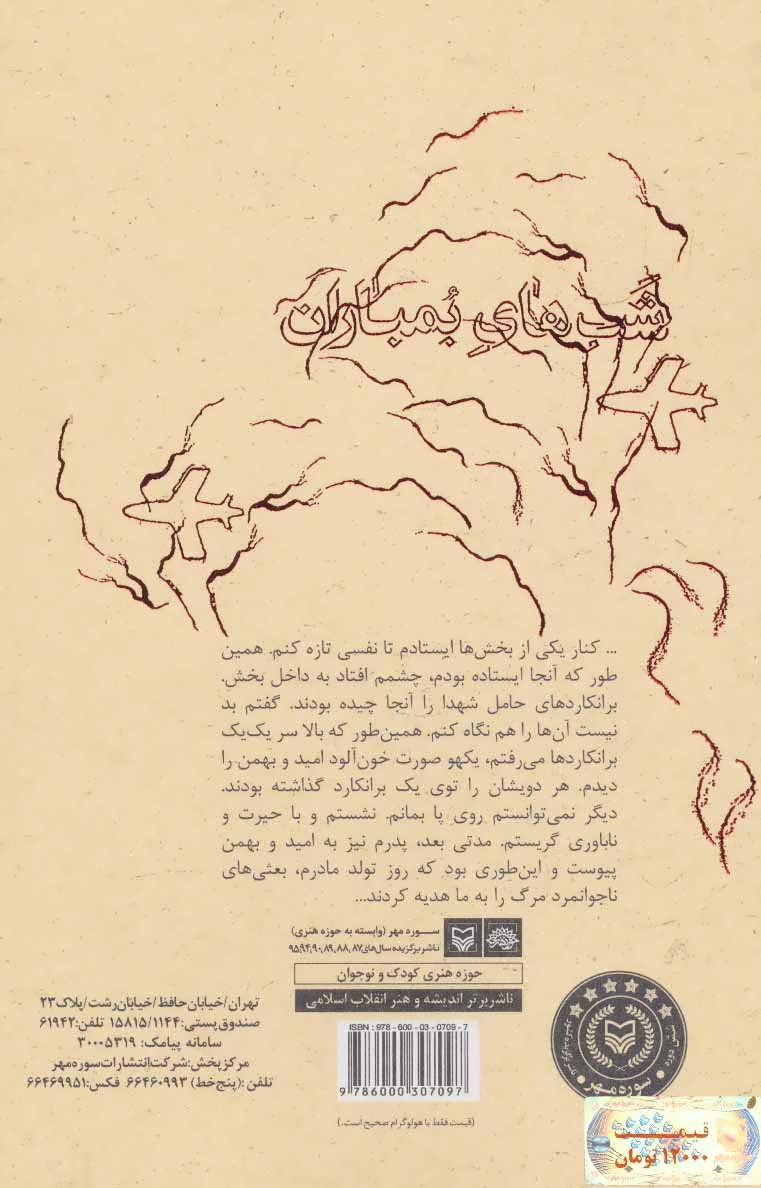 شَب‌هایِ بُمباران
... کنار یکی از بخش‌ها ایستادم تا نفسی تازه کنم. همین
طور که آنجا ایستاده بودم، چشمم افتاد به داخل بخش.
برانکاردهای حامل شهدا را آنجا چیده بودند. گفتم بد
نیست آن‌ها را هم نگاه کنم. همین‌طور که بالا سر یک‌یک
برانکاردها می‌رفتم، یکهو صورت خون‌آلود امید و بهمن را
دیدم. هر دویشان را توی یک برانکارد گذاشته بودند.
دیگر نمی‌توانستم روی پا بمانم. نشستم و با حیرت و
ناباوری گریستم. مدتی بعد، پدرم نیز به امید و بهمن
پیوست و این‌طوری بود که روز تولد مادرم، بعثی‌های
ناجوانمرد مرگ را به ما هدیه کردند...
سوره مهر (وابسته به حوزه هنری)
ناشر برگزیده سال‌های ۸۷، ۸۸، ۸۹، ۹۰، ۹۴، ۹۵
حوزه هنری کودک و نوجوان
ناشر برتر اندیشه و هنر انقلاب اسلامی
ISBN: 978-600-03-0709-7
9 786000 307097
(قیمت فقط با هولوگرام صحیح است.)
تهران/خیابان حافظ/خیابان رشت/پلاک ۲۳
صندوق پستی: ۱۵۸۱۵/۱۱۴۴ تلفن: ۶۱۹۴۲
سامانه پیامک: ۳۰۰۰۵۳۱۹
مرکز پخش: شرکت انتشارات سوره مهر
تلفن: (پنج خط) ۶۶۴۶۰۹۹۳ فکس: ۶۶۴۶۹۹۵۱
سوره مهر
قیمت
۱۲۰۰۰ تومان